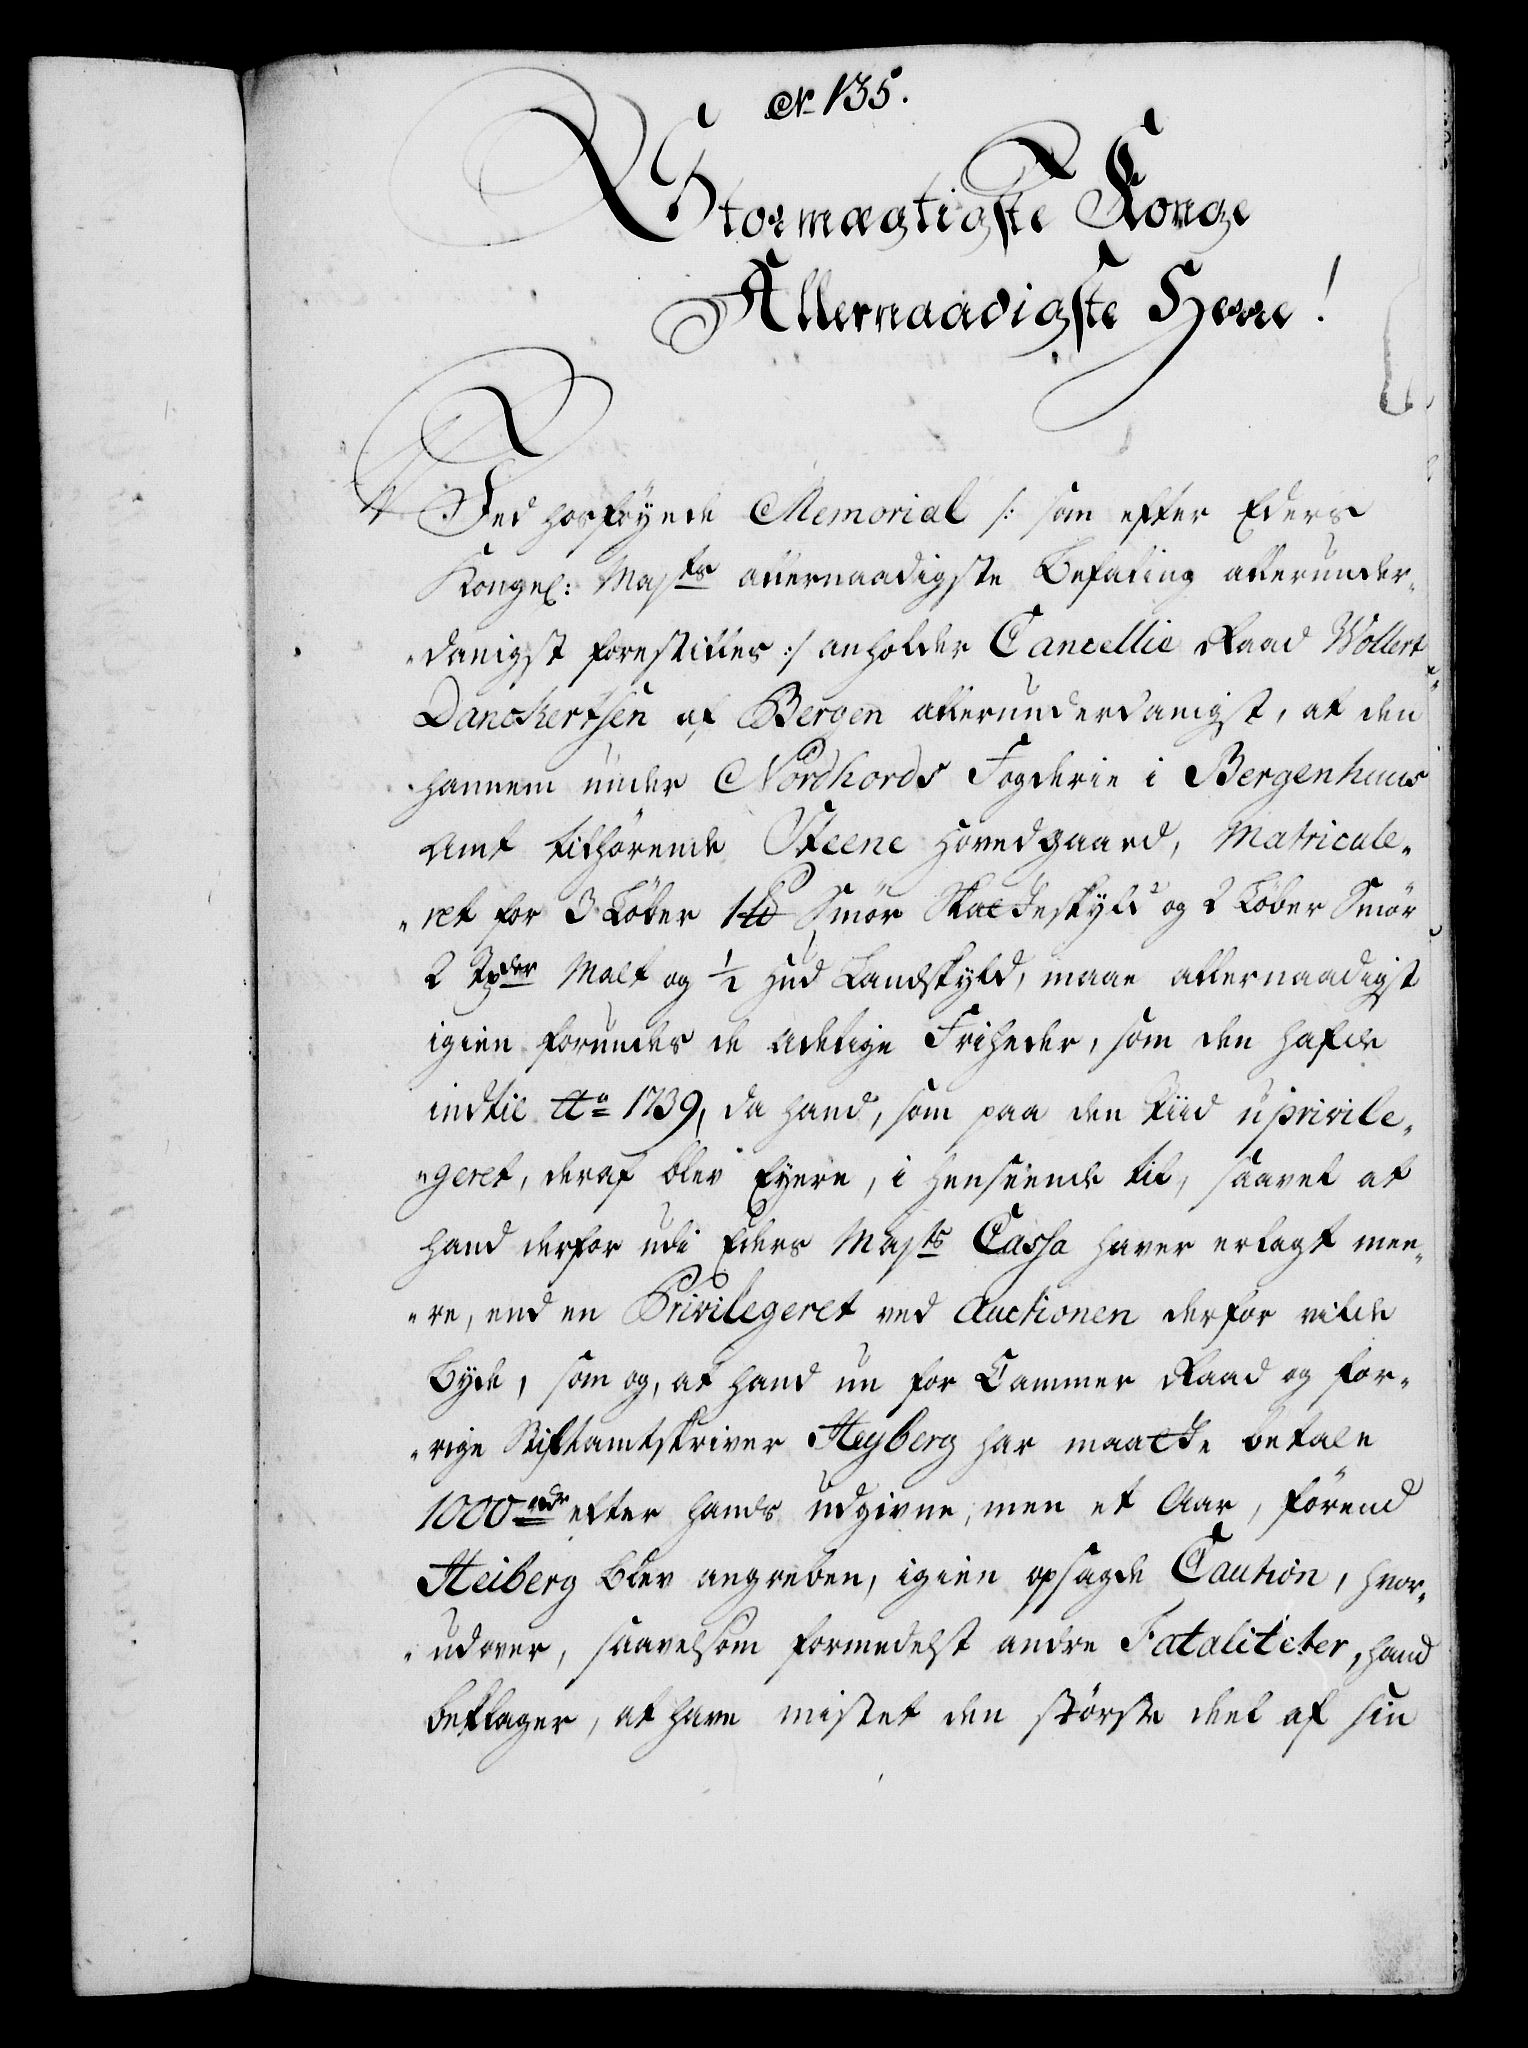 No 135.
Stormægtigste Konge
Allernaadigste Herre!
Ved hosføyede Memorial /: som efter Eders
Kongel: Majts allernaadigste Befaling allerunder-
-danigst forestilles :/ anholder Cancellie Raad Wollert
Danckertsen af Bergen allerunderdanigst, at den
hannem under Nordhords Fogderie i Bergenhuus
Amt tilhørende Steene Hovedgaard, Matricule-
-ret for 3 Løber 1 ℔ Smør Skatteskyld og 2 Løber Smør
2 Tønder Malt og 1/2 Hud Landskyld, maae allernaadigst
igien forundes de adelige Friheder, som den hafde
indtil Ao 1739, da hand, som paa den Tiid uprivile-
-geret, deraf blev Eyere, i Henseende til, saavel at
hand derfor udi Eders Majts Cassa haver erlagt mee-
-re, end en Privilegeret ved Auctionen derfor vilde
byde, som og, at hand nu for Cammer Raad og for-
-rige Stiftamtskriver Heyberg har maatte betale
1000 rdr efter hands udgivne, men et Aar, førend
Heiberg blev angreben, igien opsagde Caution, hvor-
-udover, saavelsom formedelst andre Fataliteter, hand
beklager, at have mistet den største deel af sin